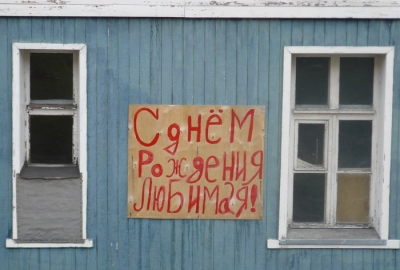 С днём
Рождения
Любимая!